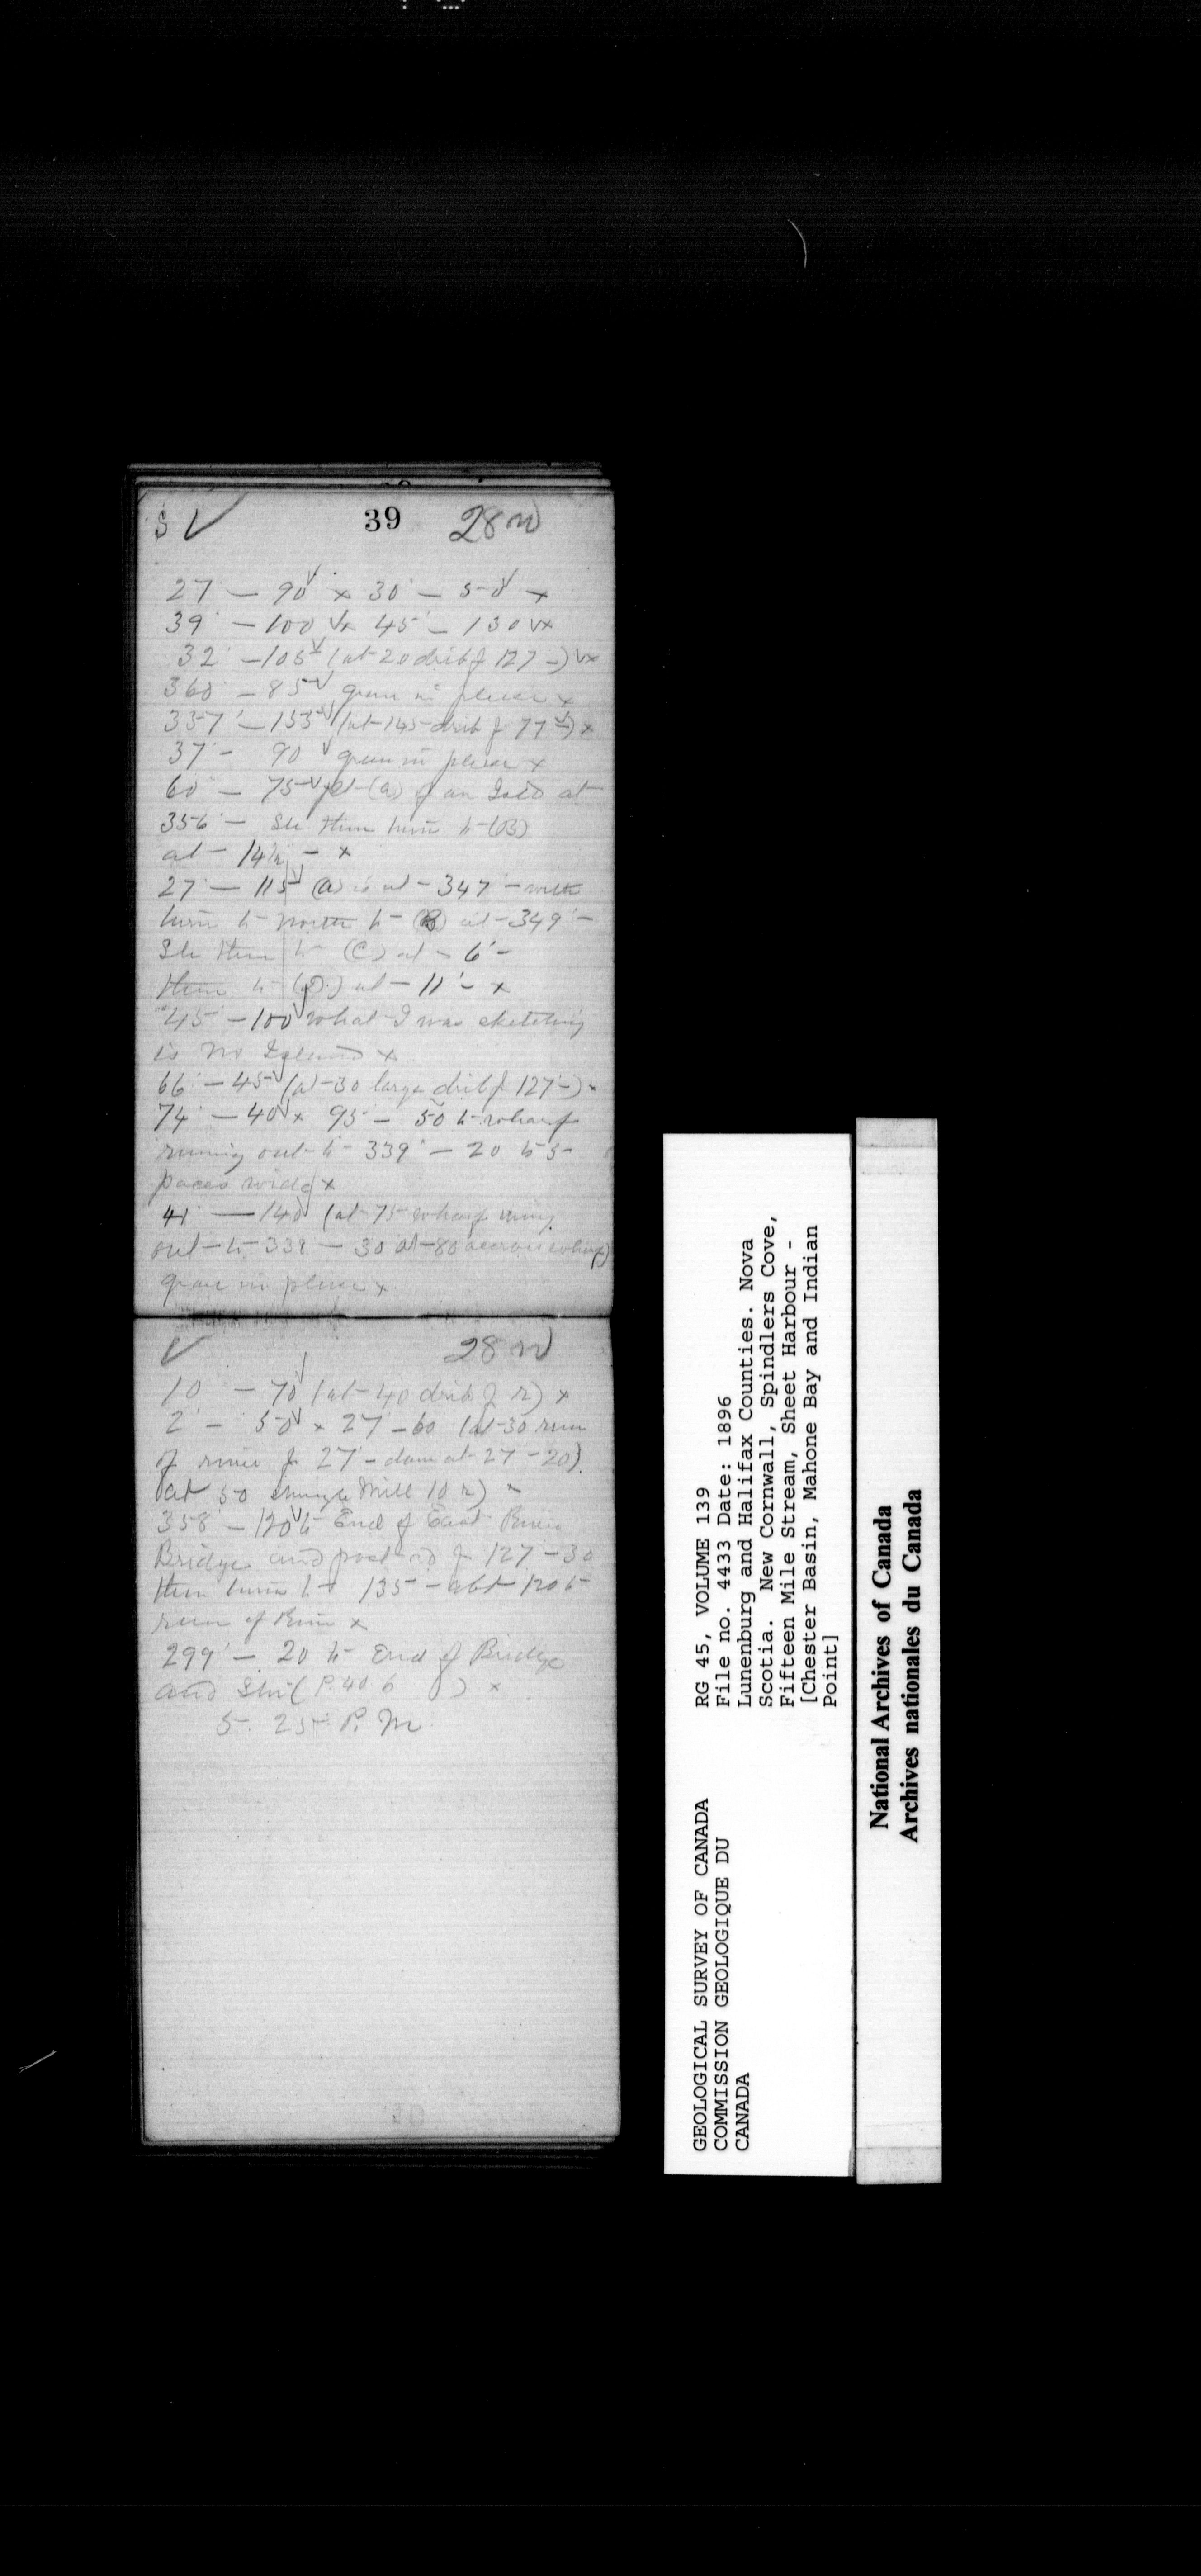 S √ 39 28 N
27° — 90 √ x 30° — 50 √ x
39° — 100 √x 45° — 130 √x
32° — 105 √ (at 20 drib f 127 —) √x
360° — 85 √ gran in place x
357° — 155 √ (at 145 drib f 77 —) x
37° — 90 √ gran in place x
60° — 75 √ pt (a) of an Isld at
356° — She then turns to (B)
at — 14½ — x
27° — 115 √ (a) is at — 347° —
turn to north to (B) at — 349° —
She then to (C) at — 6° —
then to (D) at — 11° — x
45° — 100 √ what I was sketching
is no Island x
66° — 45 √ (at 30 large drib f 127° —) x
74° — 40 √ x 95 — 50 to wharf
running out to 339° — 20 to 5
paces wide x
41° — 140 √ (at 75 wharf runing
out to 338 — 30 at 80 accross wharf)
gran in place x
√ 28 N
10° — 70 √ (at 40 drib f r) x
2° — 50 √ x 27° — 60 (at 30 run
of river f 27° — dam at 27 — 20)
at 50 shingle Mill 10 r) x
358 — 120 √ to End of East River
Bridge and post rd f 127 — 30
then turns to 135 — abt 120 to
run of River x
299° — 20 to End of Bridge
and Stn (P. 40 b ) x
5. 25 P. M.
GEOLOGICAL SURVEY OF CANADA
COMMISSION GEOLOGIQUE DU
CANADA
RG 45, VOLUME 139
File no. 4433 Date: 1896
Lunenburg and Halifax Counties. Nova
Scotia. New Cornwall, Spindlers Cove,
Fifteen Mile Stream, Sheet Harbour -
[Chester Basin, Mahone Bay and Indian
Point]
National Archives of Canada
Archives nationales du Canada